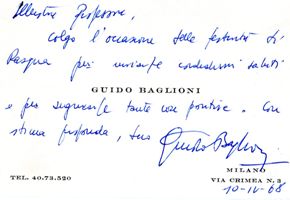 Illustre Professore,
colgo l'occasione delle festività di
Pasqua per inviarle cordialissimi saluti
GUIDO BAGLIONI
e per augurarle tante cose positive. Con
stima profonda, suo Guido Baglioni
MILANO
TEL. 40.73.520 VIA CRIMEA N. 3
10-IV-68